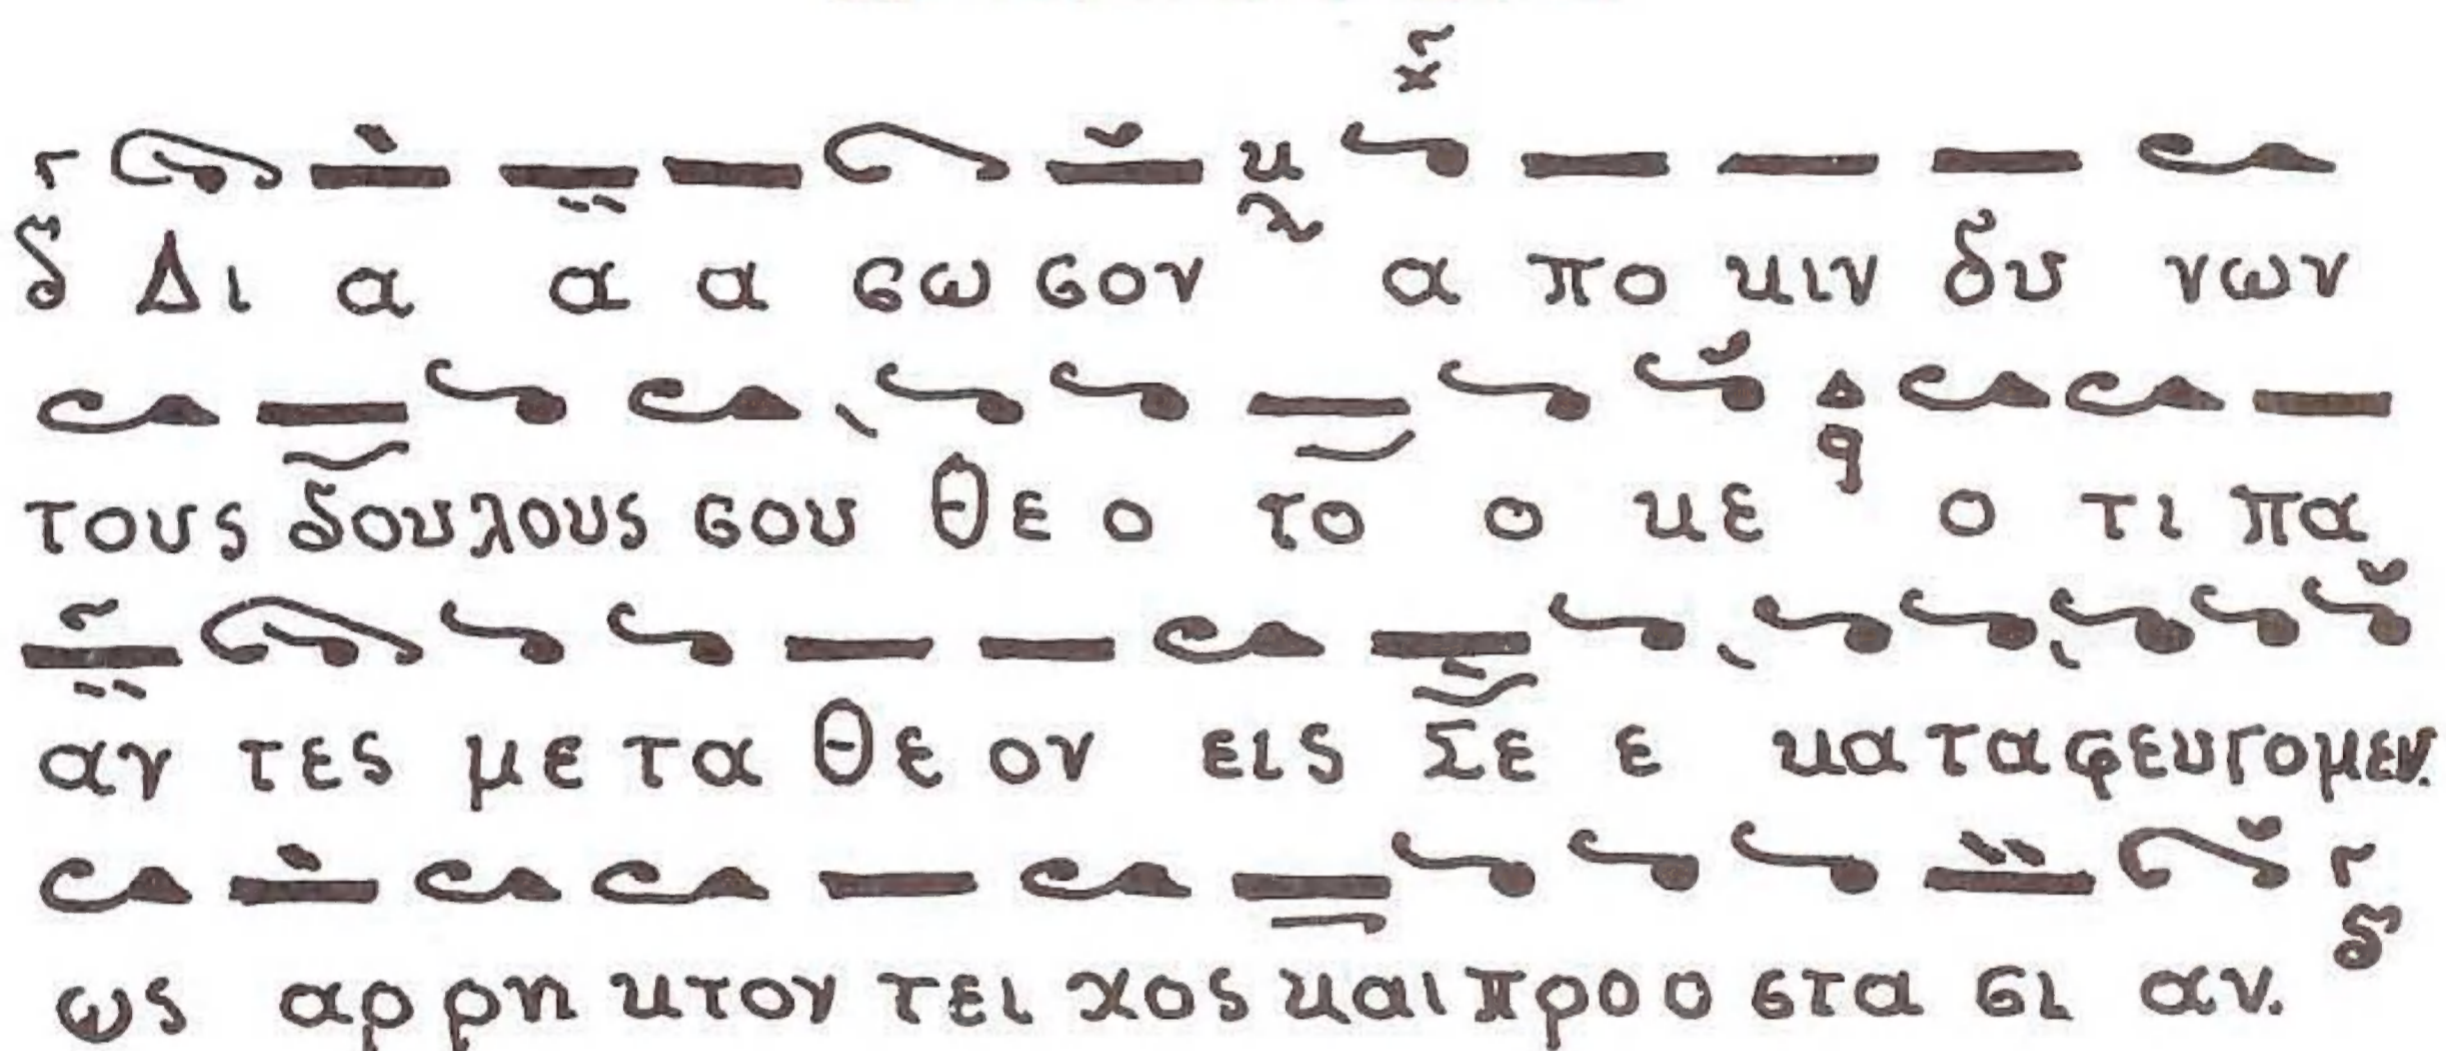 δ Δι α α α σω σον α πο κιν δυ νων
τους δουλους σου Θε ο το ο κε ο τι πα
αν τες με τα Θε ον εις Σε ε κα τα φευγομεν.
ως αρ ρη κτον τει χος και προ ο στα σι αν.